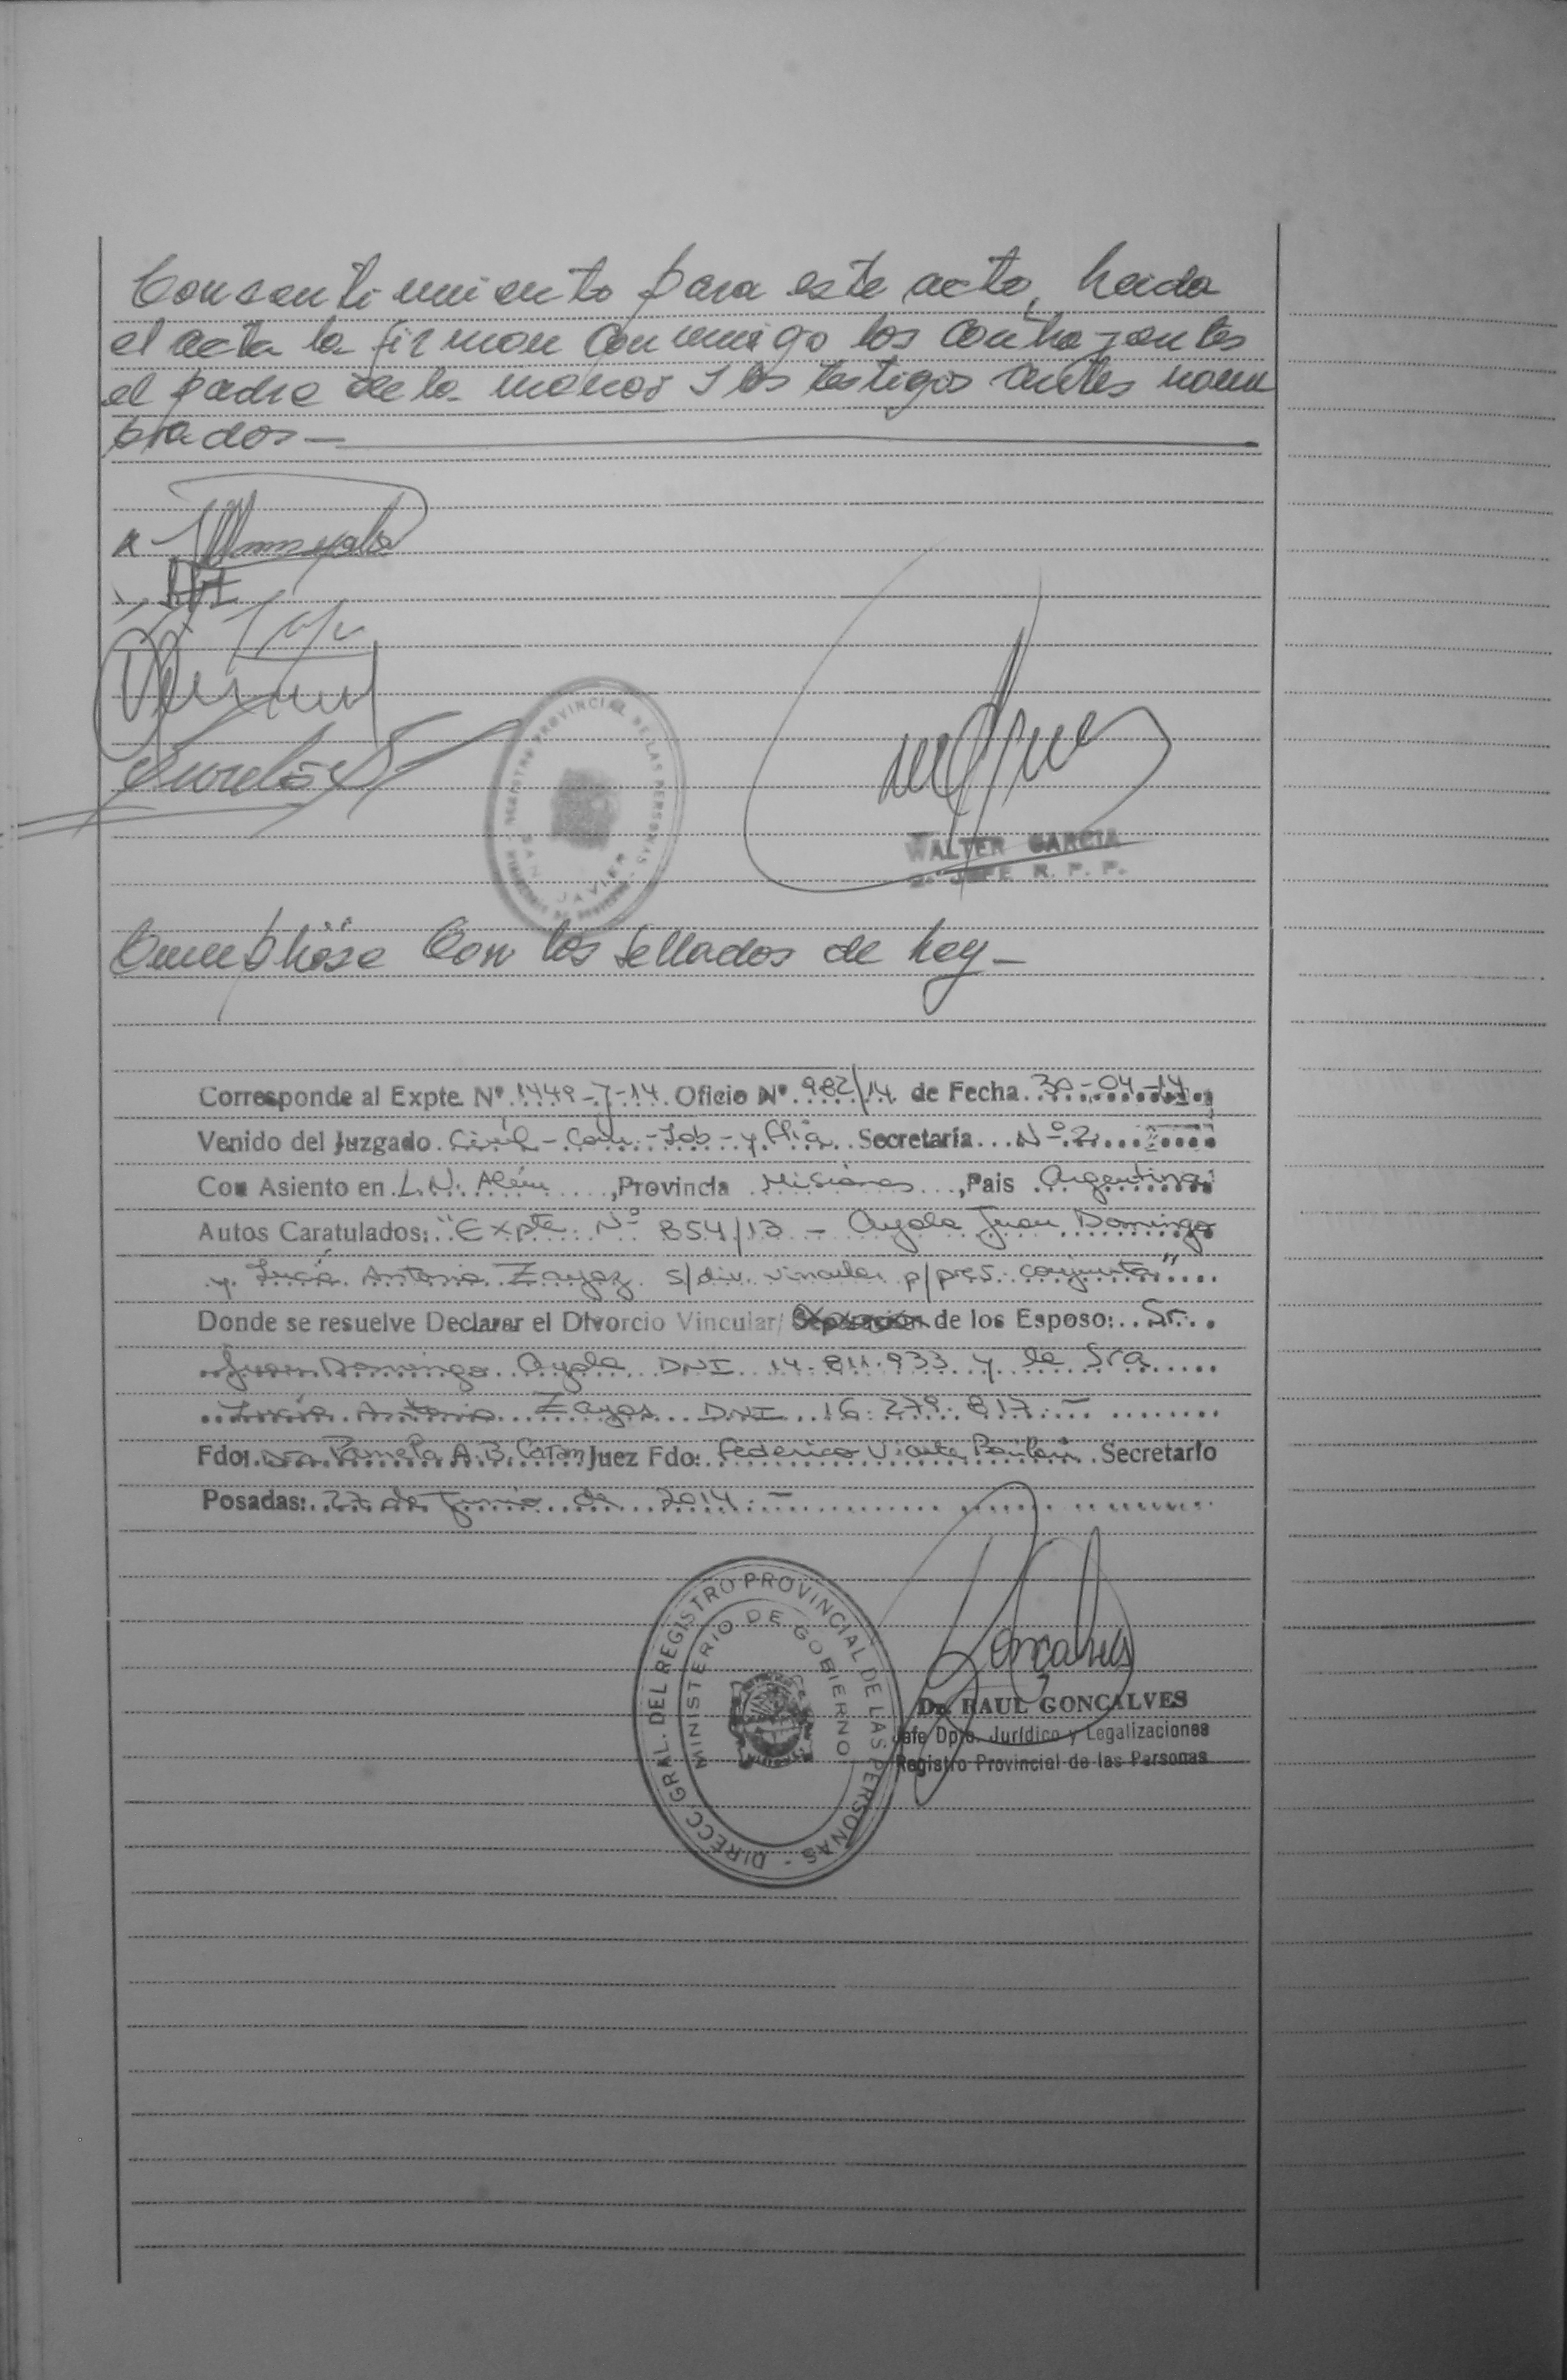 Consentimiento para este acto, Leida
el acta la firman conmigo los contrayentes
el padre de la menor y los testigos antes nom
brados—
REGISTRO PROVINCIAL DE LAS PERSONAS
SAN JAVIER
WALTER GARCIA
JEFE R. P. P.
Cumplióse con los sellados de hoy—
Corresponde al Expte Nº 1449-7-14 Oficio Nº 982/14 de Fecha 30-04-14
Venido del Juzgado Civil-Com.-Lab-y Flia. Secretaría Nº 2
Con Asiento en L.N. Alem, Provincia Misiones, Pais Argentina
Autos Caratulados: "Expte Nº 854/13 - Ayala Juan Domingo
y Lucía Antonia Zayaz s/div. vincular p/pres. conjunta"
Donde se resuelve Declarar el Divorcio Vincular/Separación de los Esposo: Sr.
Juan Domingo Ayala DNI 14.811.933 y la Sra
Lucía Antonia Zayas DNI 16.279.817.-
Fdo: Dra Pamela A.B. Juez Fdo: Federico Secretario
Posadas: 27 de Junio de 2014.-
DIRECC. GRAL. DEL REGISTRO PROVINCIAL DE LAS PERSONAS -
MINISTERIO DE GOBIERNO
Dr. RAUL GONCALVES
Jefe Dpto. Jurídico y Legalizaciones
Registro Provincial de las Personas